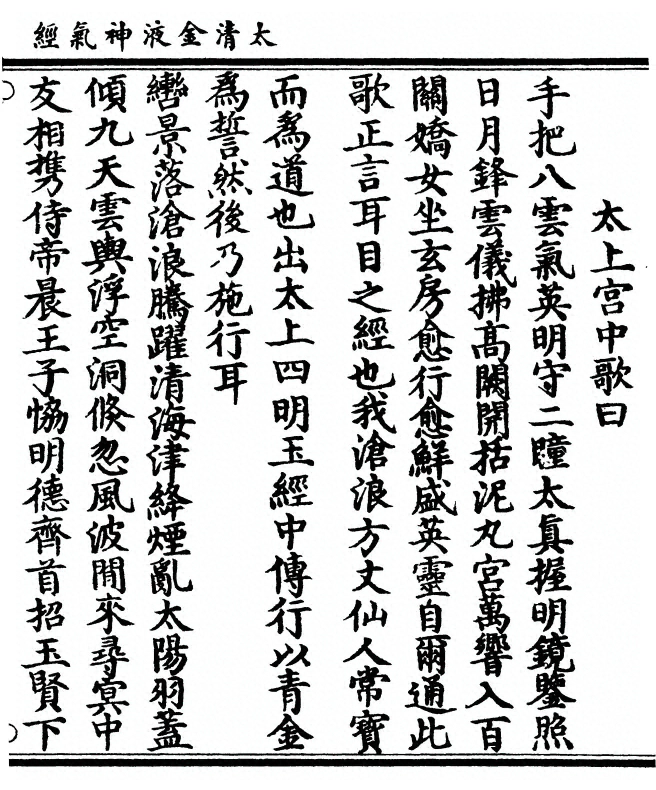 太清金液神氣經
太上宮中歌曰
手把八雲氣英明守二瞳太真握明鏡鑒照
日月鋒雲儀拂高闕開括泥丸宮萬響入百
關嬌女坐玄房愈行愈鮮盛英靈自爾通此
歌正言耳目之經也我滄浪方丈仙人常寶
而為道也出太上四明玉經中傳行以青金
為誓然後乃施行耳
轡景落滄浪騰躍清海津絳煙亂太陽羽蓋
傾九天雲輿浮空洞倏忽風波間來尋冥中
友相携侍帝晨王子恊明德齊首招玉賢下